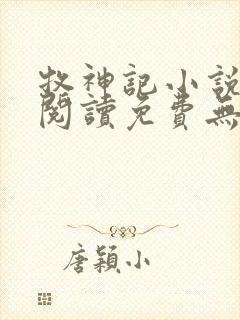 牧神記小說
閱讀免費無
唐穎小